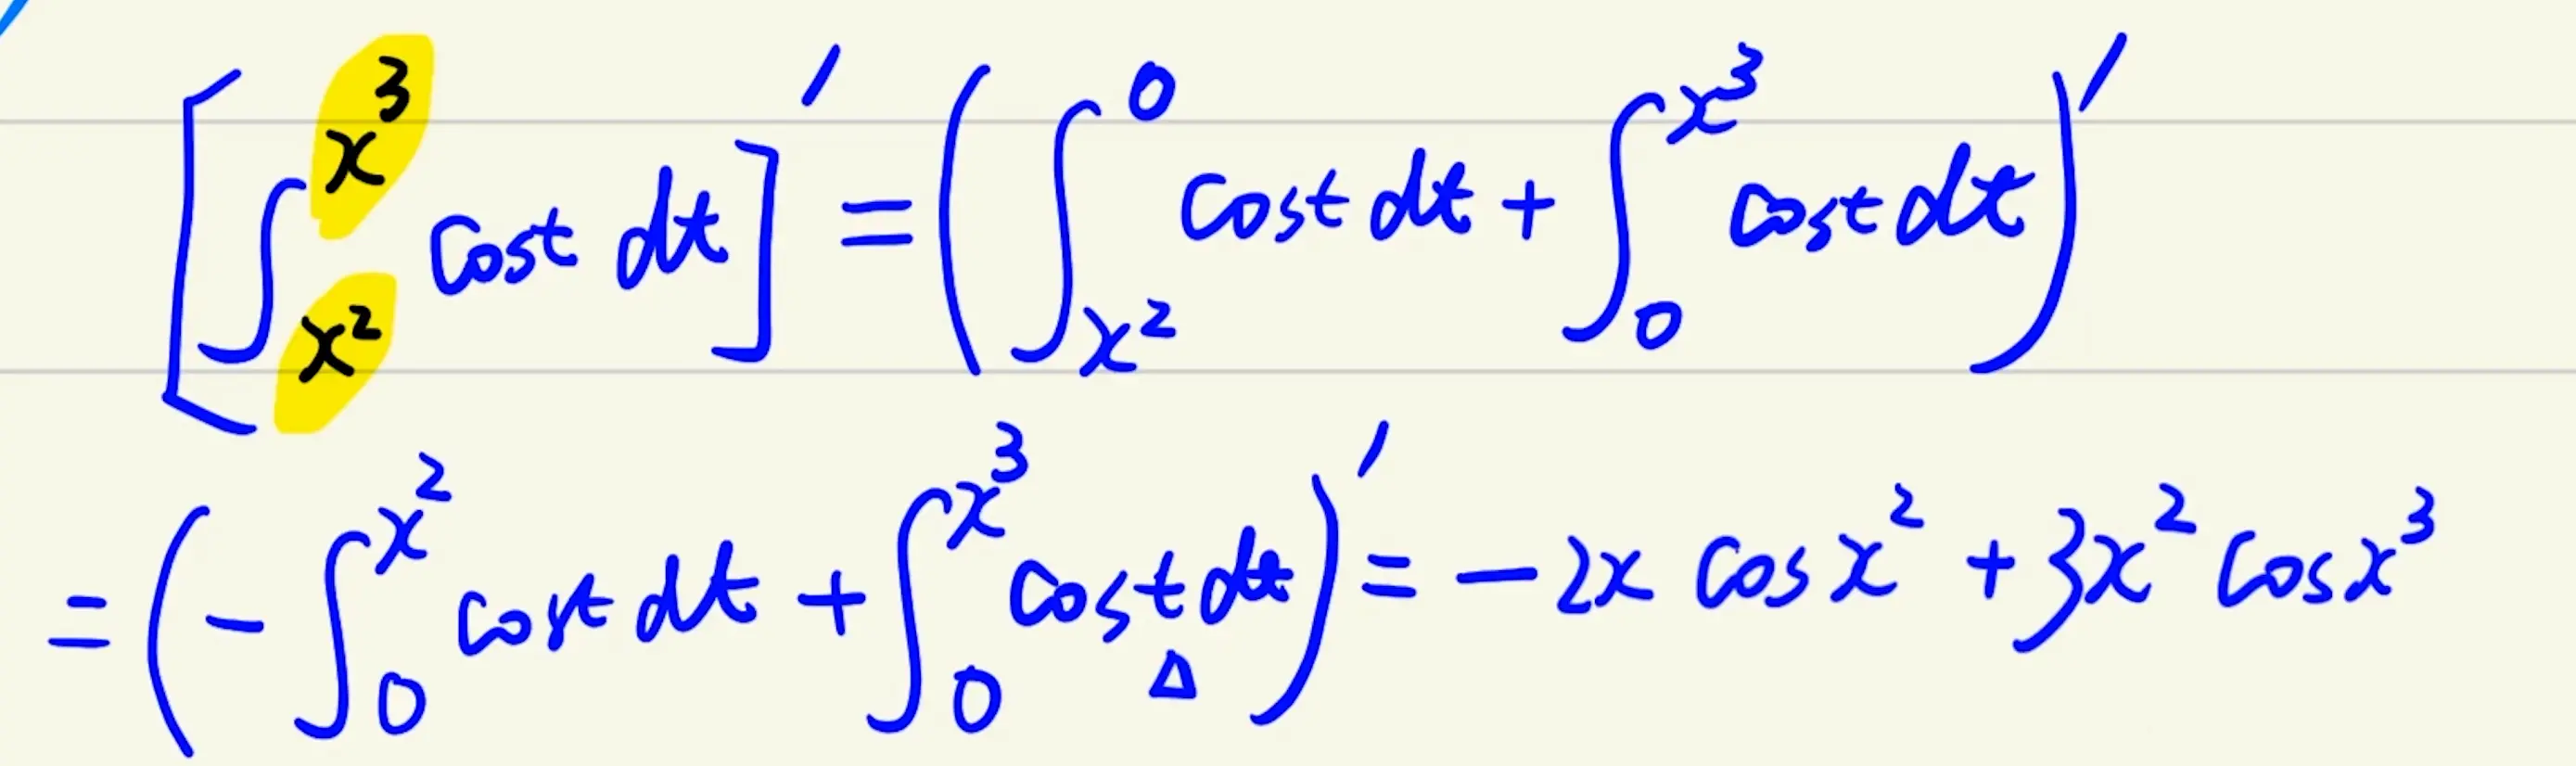 [∫_{x²}^{x³} cost dt]′ = (∫_{x²}^{0} cost dt + ∫_{0}^{x³} cost dt)′
= (-∫_{0}^{x²} cost dt + ∫_{0}^{x³} cost dt)′ = -2x cosx² + 3x² cosx³
Δ